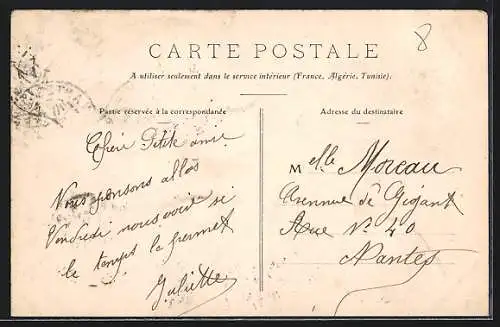 8
CARTE POSTALE
A utiliser seulement dans le service intérieur (France, Algérie, Tunisie).
Partie réservée à la correspondance
Chère Petite amie
Nous pensons allos
Vendredi nous voir si
le temps le permet
Juliette
Adresse du destinataire
Melle Moreau
Avennue de Gigant
Rue No 40
Nantes